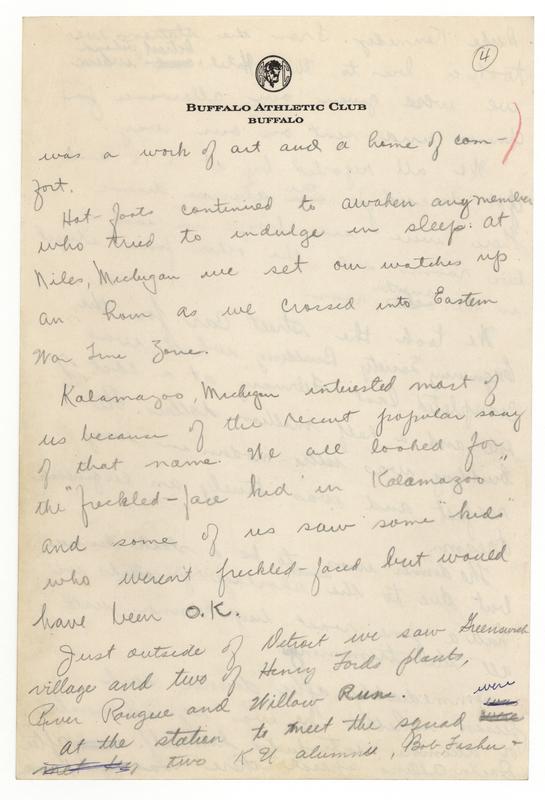 4
BUFFALO ATHLETIC CLUB
BUFFALO
was a work of art and a home of com-
fort.
Hot-foots continued to awaken any member
who tried to indulge in sleep: at
Niles, Michigan we set our watches up
an hour as we crossed into Eastern
War Time Zone.
Kalamazoo, Michigan interested most of
us because of the recent popular song
of that name. We all looked for
the "freckled-face kid in Kalamazoo"
and some of us saw some "kids"
who weren't freckled-faced but would
have been O.K.
Just outside of Detroit we saw Greenwich
village and two of Henry Fords plants,
River Rouge and Willow Run.
were
At the station to meet the squad
two K U alumnii, Bob Fisher +